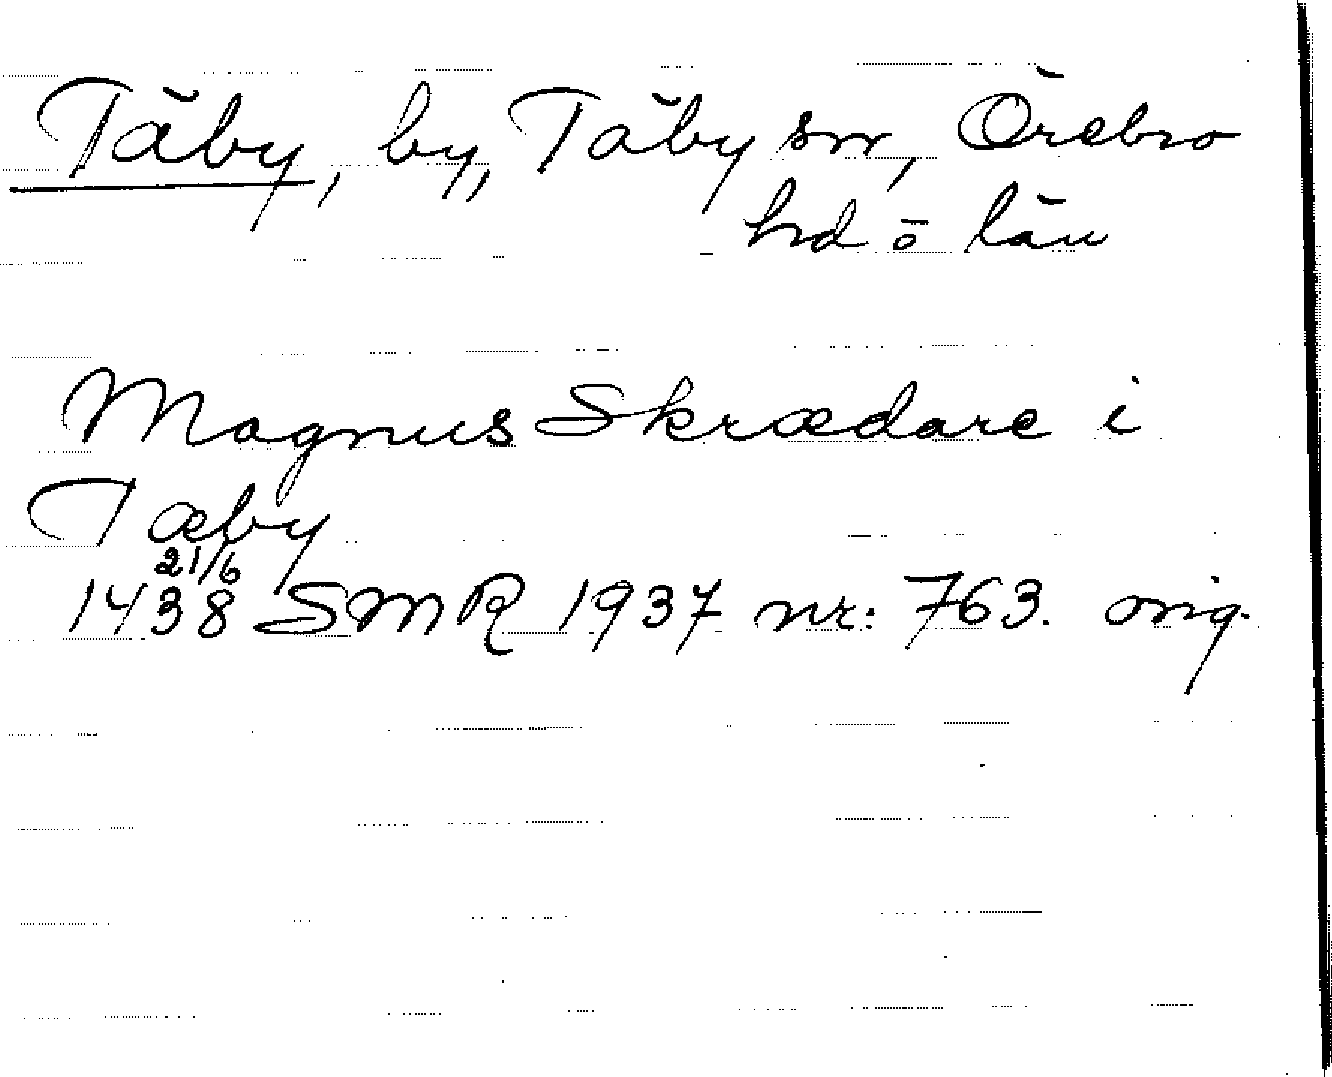 Täby, by, Täby sn, Örebro
hd o län
Magnus Skrædare i
Tæby
21/6
1438 SMR 1937 nr: 763. orig.